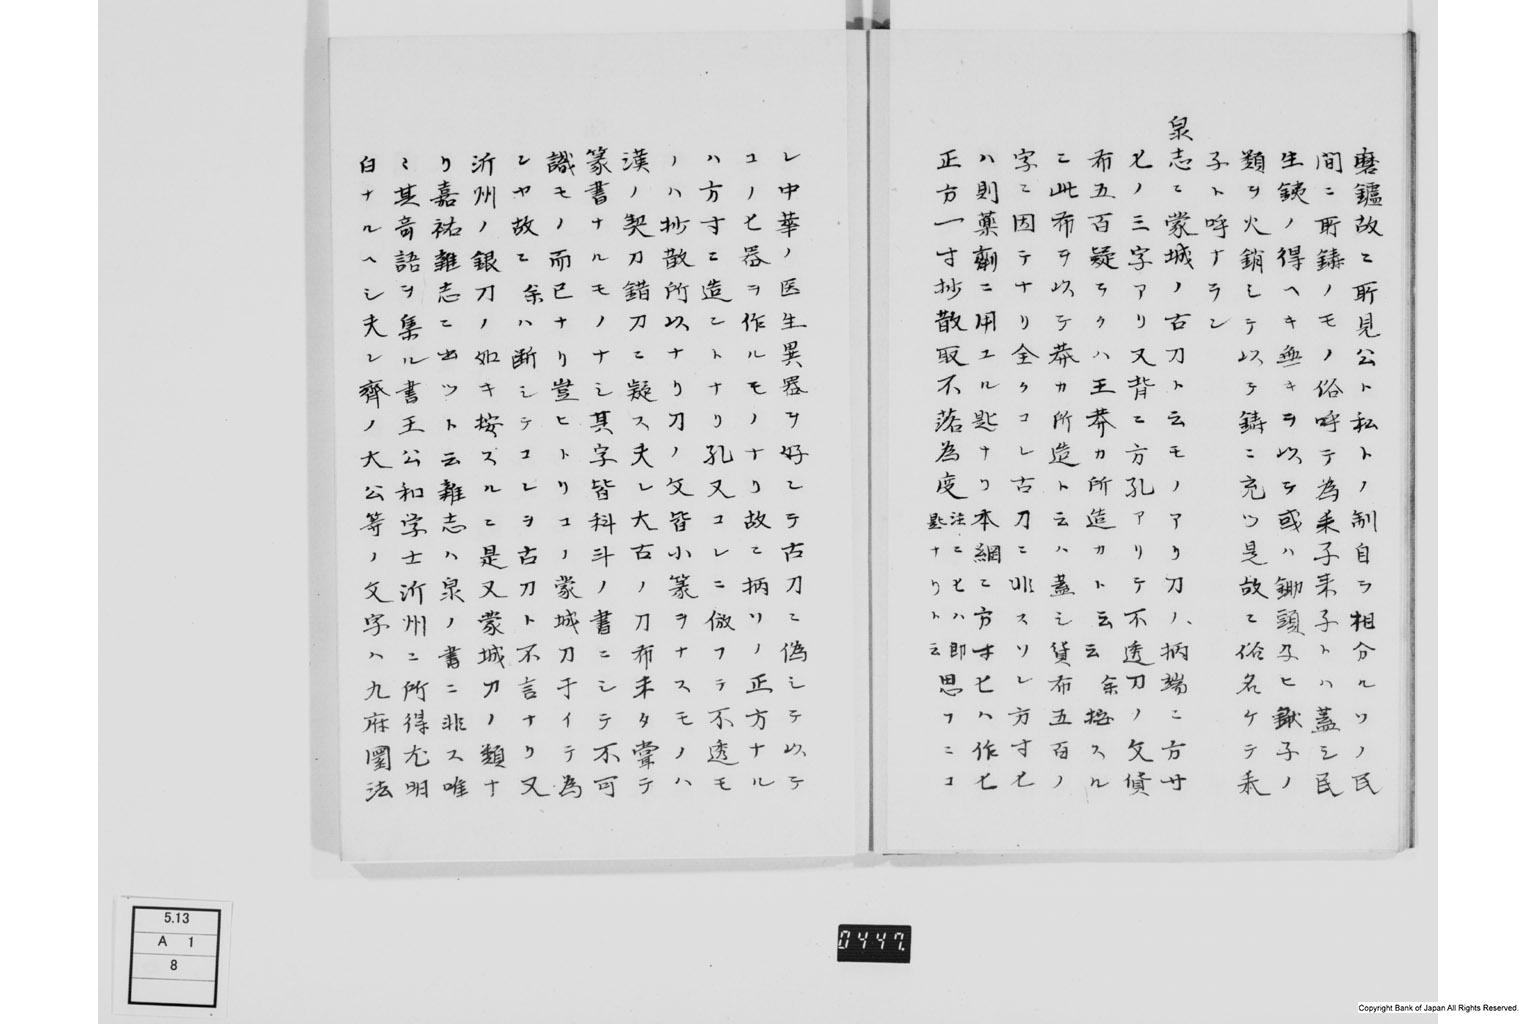 磨鑪故ニ所見公ト私トノ制自ラ相分ルソノ民
間ニ所鋳ノモノ俗呼テ為耒子耒子トハ蓋シ民
生銕ノ得ヘキ無キヲ以テ或ハ鋤頭子ヒ鍬子ノ
類ヲ火銷シテ以テ鋳ニ充ツ是故ニ俗名ケテ耒
子ト呼ナラン
泉志ニ蒙城ノ古刀ト云モノアリ刀ハ柄端ニ方寸
七ノ三字アリ又背ニ方孔アリテ不透刀ノ文傎
布五百疑ラクハ王莽カ所造カト云云余按スル
ニ此布ヲ以テ莽カ所造ト云ハ蓋シ貨布五百ノ
字ニ因テナリ全クコレ古刀ニ非スソレ方寸七
ハ則藥劑ニ用ユル匙ナリ本綱ニ方寸七ハ作七
正方一寸抄散取不落為度注ニ七ハ即匙ナリト云思フニコ
レ中華ノ医生異器ヲ好ンテ古刀ニ偽シテ以テ
コノ七器ヲ作ルモノナリ故ニ柄ソノ正方ナル
ハ方寸ニ造ントナリ孔又コレニ倣フテ不透モ
ノハ抄散所以ナリ刀ノ文皆小篆ヲナスモノハ
漢ノ契刀錯刀ニ疑ス夫レ大古ノ刀布未タ甞テ
篆書ナルモノナシ其字皆科斗ノ書ニシテ不可
識モノ而已ナリ豈ヒトリコノ蒙城刀于イテ為
ンヤ故ニ余ハ断シテコレヲ古刀ト不言ナリ又
沂州ノ銀刀ノ如キ按スルニ是又蒙城刀ノ類ナ
リ嘉祐雑志ニ出ツト云雑志ハ泉ノ書ニ非ス唯
ミ其奇語ヲ集ル書王公和学士沂州ニ所得尤明
白ナルヘシ夫レ齊ノ大公等ノ文字ハ九府圜法
5.13
A 1
8
0447.
Copyright Bank of Japan All Rights Reserved.